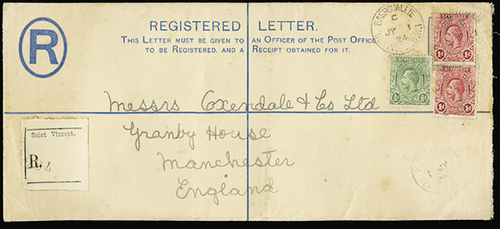 R
REGISTERED LETTER.
THIS LETTER MUST BE GIVEN TO AN OFFICER OF THE POST OFFICE
TO BE REGISTERED, AND A RECEIPT OBTAINED FOR IT.
C
1
JY
24
Messrs Oxendale & Co Ltd
Granby House
Manchester
England
Saint Vincent.
R.